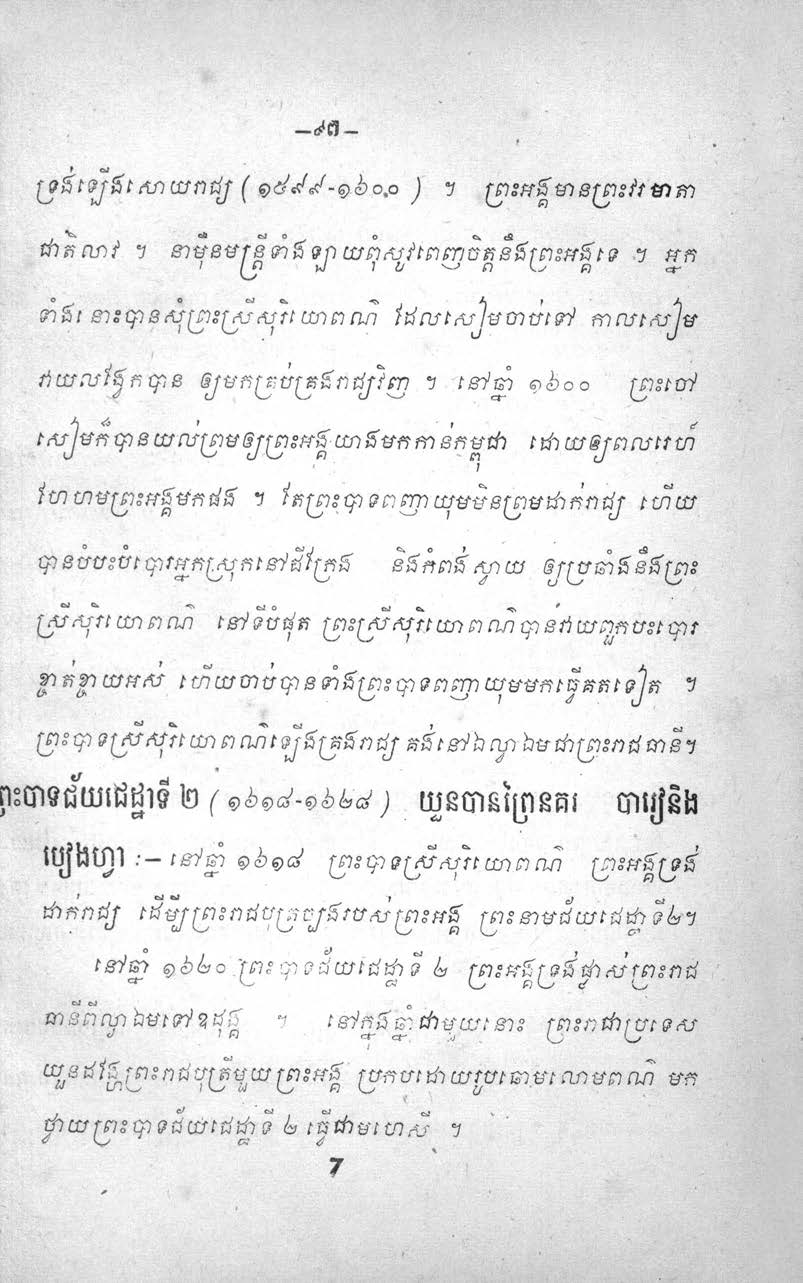 —៩៧—
ទ្រង់ឡើងសោយរាជ្យ ( ១៥៩៩-១៦០០ ) ។ ព្រះអង្គមានព្រះវរមាតា
ជាតិលាវ ។ នាម៉ឺនមន្ត្រីទាំងឡាយពុំសូវពេញចិត្តនឹងព្រះអង្គទេ ។ អ្នក
ទាំងនោះបានសុំព្រះស្រីសុរិយោពណ៌ ដែលសៀមចាប់ទៅ កាលសៀម
វាយលង្វែកបាន ឲ្យមកគ្រប់គ្រងរាជ្យវិញ ។ នៅឆ្នាំ ១៦០០ ព្រះចៅ
សៀមក៏បានយល់ព្រមឲ្យព្រះអង្គយាងមកកាន់កម្ពុជា ដោយឲ្យពលរេហ៍
ហែហមព្រះអង្គមកផង ។ តែព្រះបាទពញាយុមមិនព្រមដាក់រាជ្យ ហើយ
បានបំបះបំបោរអ្នកស្រុកនៅជីក្រែង និងកំពង់ស្វាយ ឲ្យប្រឆាំងនឹងព្រះ
ស្រីសុរិយោពណ៌ នៅទីបំផុត ព្រះស្រីសុរិយោពណ៌បានវាយពួកបះបោរ
ខ្ចាត់ខ្ចាយអស់ ហើយចាប់បានទាំងព្រះបាទពញាយុមមកធ្វើគតទៀត ។
ព្រះបាទស្រីសុរិយោពណ៌ឡើងគ្រងរាជ្យ គង់នៅឯល្វាឯមជាព្រះរាជធានី។
ព្រះបាទជ័យជេដ្ឋាទី ២ ( ១៦១៨-១៦២៨ ) យួនបានព្រៃនគរ បារៀនិង
បៀងហ្វា :— នៅឆ្នាំ ១៦១៨ ព្រះបាទស្រីសុរិយោពណ៌ ព្រះអង្គទ្រង់
ដាក់រាជ្យ ដើម្បីព្រះរាជបុត្រច្បងរបស់ព្រះអង្គ ព្រះនាមជ័យជេដ្ឋាទី២។
នៅឆ្នាំ ១៦២០ ព្រះបាទជ័យជេដ្ឋាទី ២ ព្រះអង្គទ្រង់ផ្លាស់ព្រះរាជ
ធានីពីល្វាឯមទៅឧដុង្គ ។ នៅក្នុងឆ្នាំជាមួយនោះ ព្រះរាជាប្រទេស
យួនដង្ហែព្រះរាជបុត្រីមួយព្រះអង្គ ប្រកបដោយរូបឆោមលោមពណ៌ មក
ថ្វាយព្រះបាទជ័យជេដ្ឋាទី ២ ធ្វើជាមហេសី ។
7